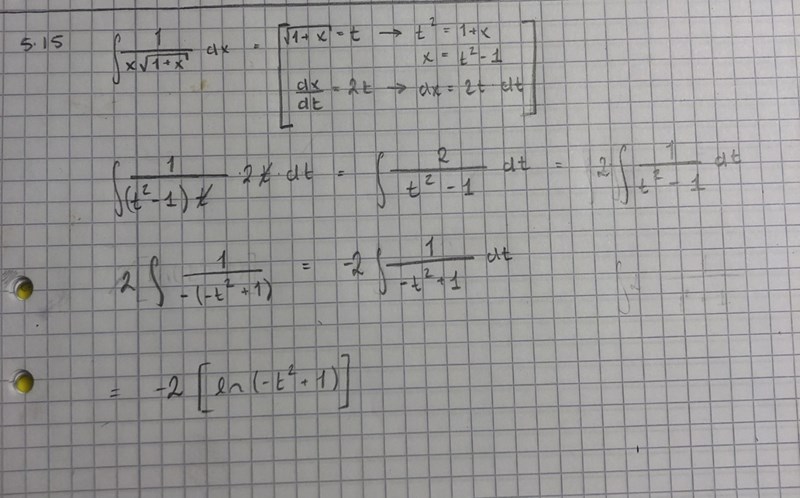 5.15 ∫ 1/(x√(1+x)) dx = [√(1+x) = t → t² = 1+x
x = t² - 1
dx/dt = 2t → dx = 2t dt]
∫ 1/((t² - 1) t) · 2t · dt = ∫ 2/(t² - 1) dt = 2 ∫ 1/(t² - 1) dt
2 ∫ 1/(-(-t² + 1)) = -2 ∫ 1/(-t² + 1) dt
= -2 [ln(-t² + 1)]